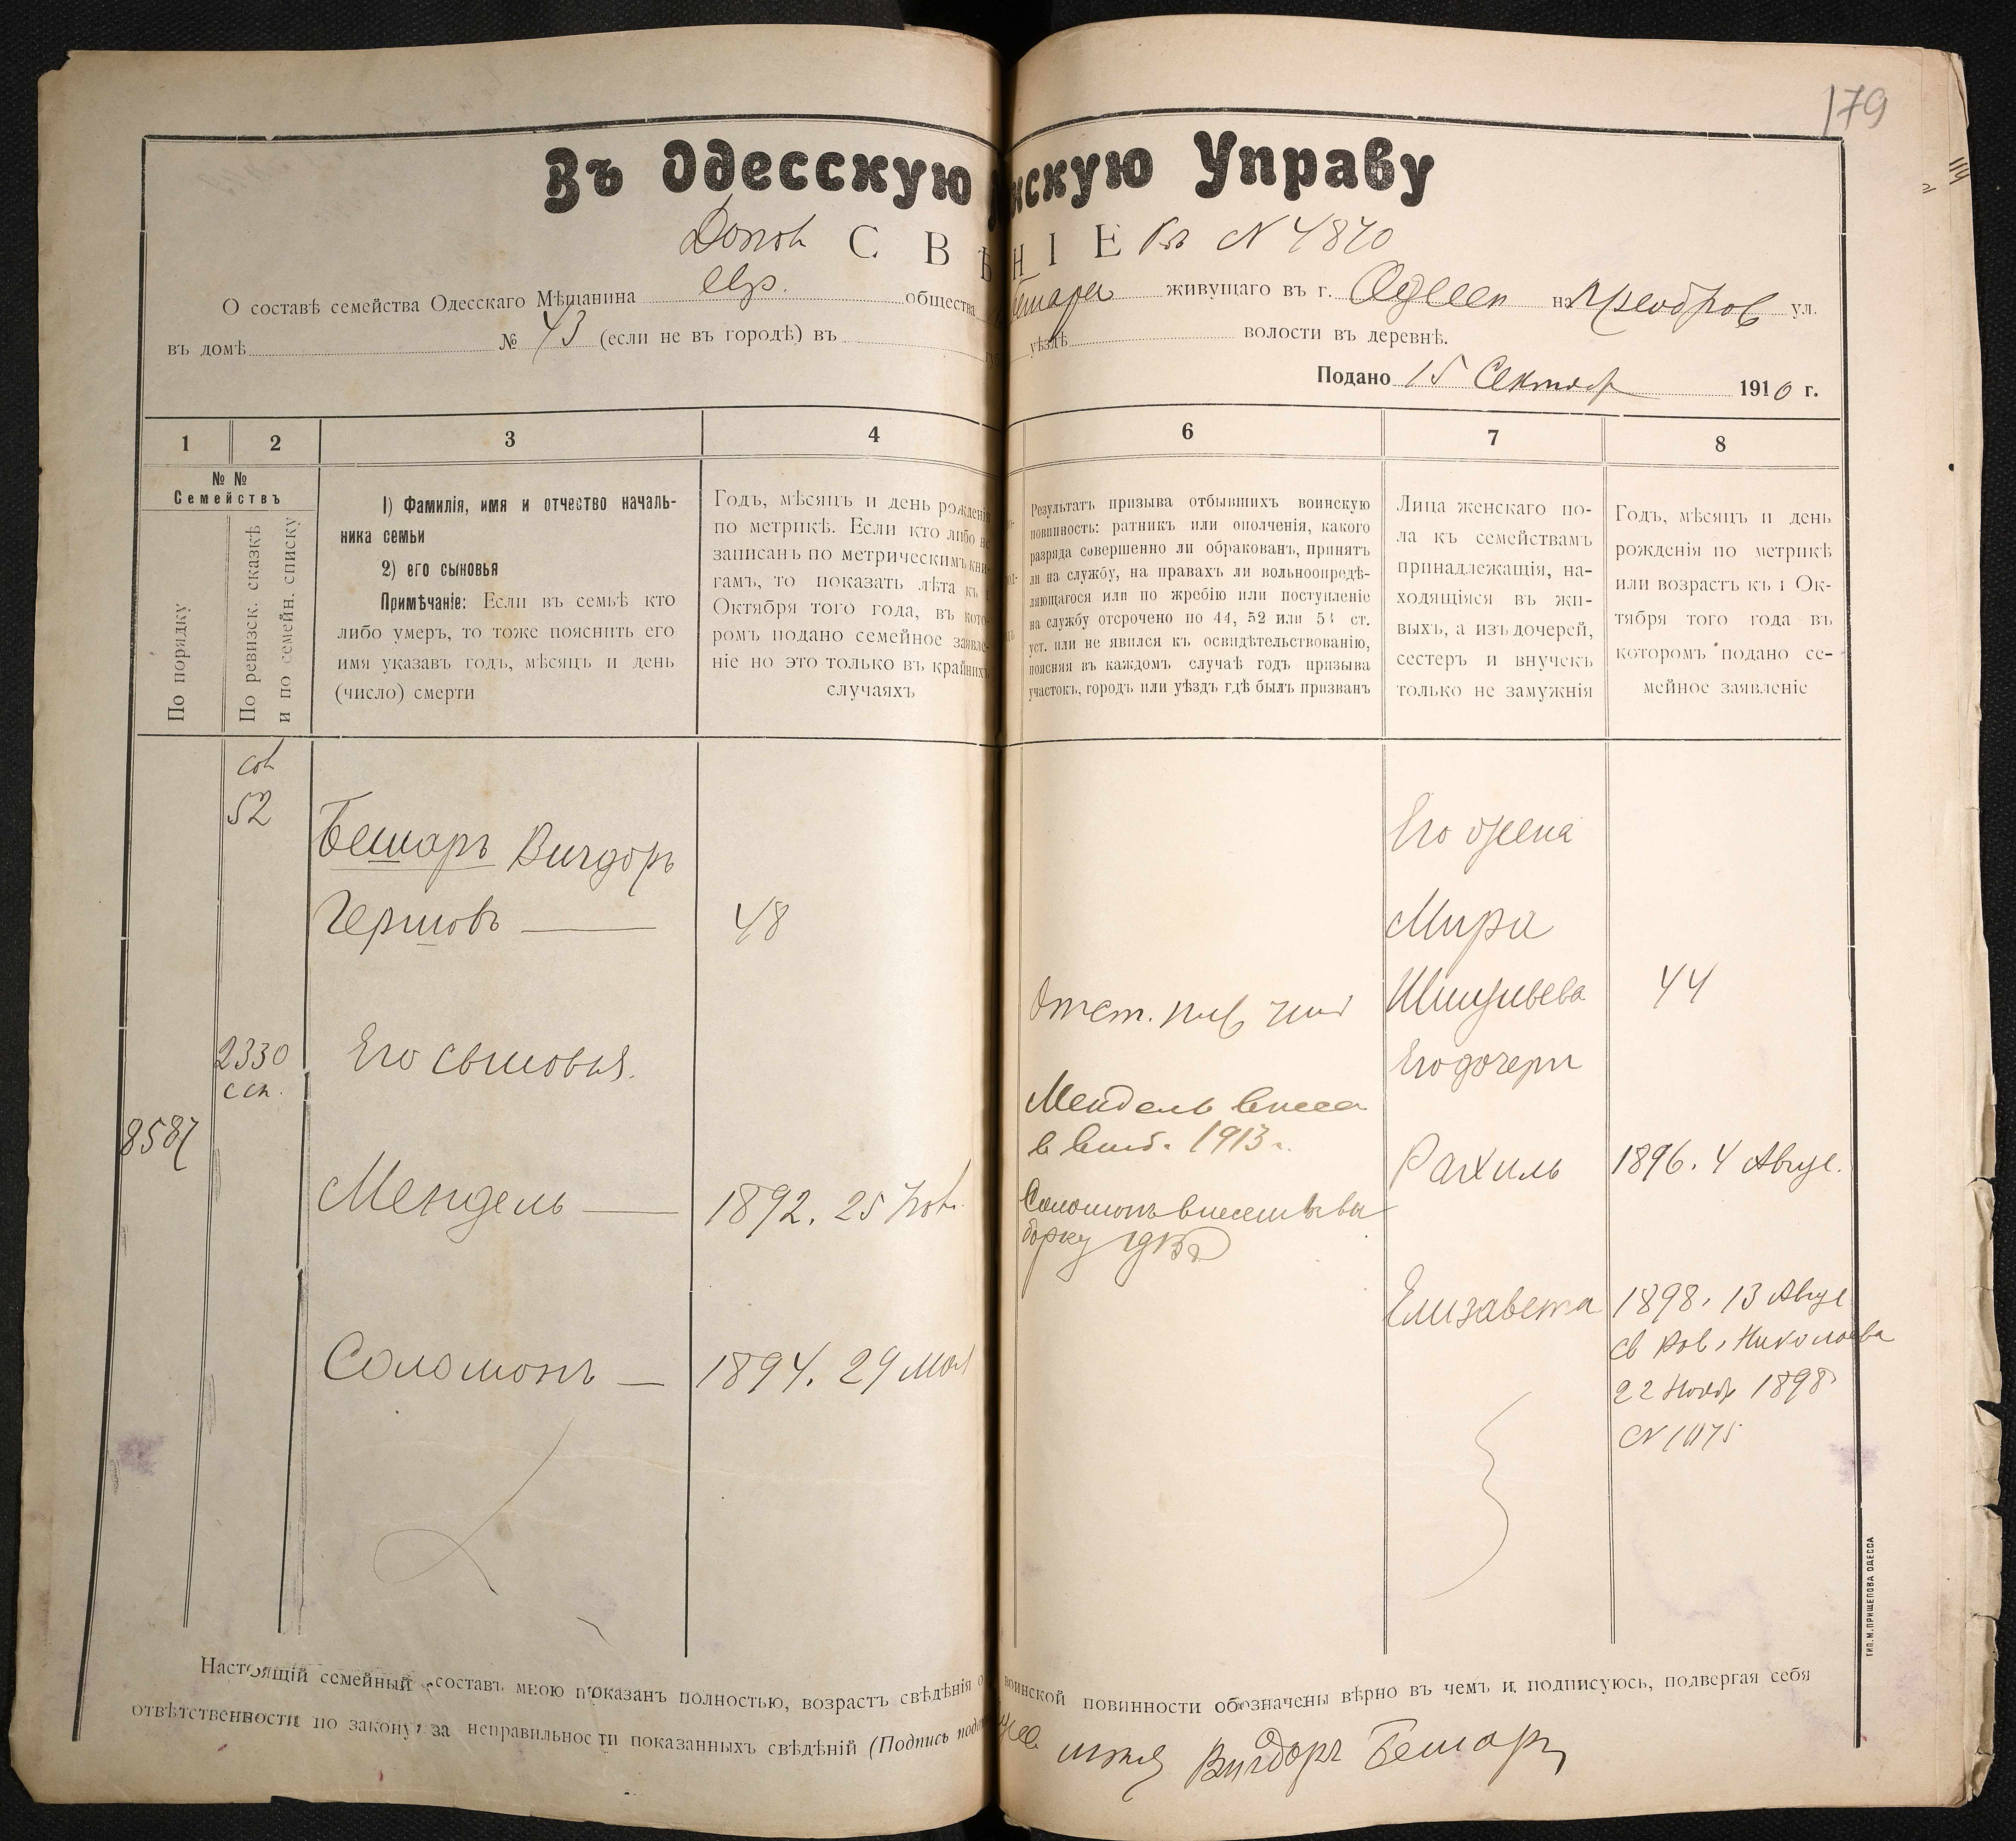 179
Въ Одесскую нскую Управу
Допол СВѢ НІЕ Къ № 4870
О составѣ семейства Одесскаго Мѣщанина евр. общества Бешара живущаго въ г. Одессѣ на ул.
въ домѣ № 43 (если не въ городѣ) въ уѣздѣ волости въ деревнѣ.
Подано 15 Сентябр 1910 г.
1 2 3 4 6 7 8
№ №
Семействъ
По порядку
По ревизск. сказкѣ
и по семейн. списку
1) Фамилія, имя и отчество началь-
ника семьи
2) его сыновья
Примѣчаніе: Если въ семьѣ кто
либо умеръ, то тоже пояснить его
имя указавъ годъ, мѣсяцъ и день
(число) смерти
Годъ, мѣсяцъ и день рожденія
по метрикѣ. Если кто либо не
записанъ по метрическимъ кни-
гамъ, то показать лѣта къ 1
Октября того года, въ кото-
ромъ подано семейное заявле-
ніе но это только въ крайнихъ
случаяхъ
Результатъ призыва отбывшихъ воинскую
повинность: ратникъ или ополченія, какого
разряда совершенно ли обракованъ, принятъ
ли на службу, на правахъ ли вольноопредѣ-
ляющагося или по жребію или поступленіе
на службу отсрочено по 44, 52 или 53 ст.
уст. или не явился къ освидѣтельствованію,
поясняя въ каждомъ случаѣ годъ призыва
участокъ, городъ или уѣздъ гдѣ былъ призванъ
Лица женскаго по-
ла къ семействамъ
принадлежащія, на-
ходящіяся въ жи-
выхъ, а изъ дочерей,
сестеръ и внучекъ
только не замужнія
Годъ, мѣсяцъ и день
рожденія по метрикѣ
или возрастъ къ 1 Ок-
тября того года въ
которомъ подано се-
мейное заявленіе
52
Бешаръ Вигдоръ
Гершовъ — 48
2330
с сп.
Его сыновья.
8587
Мендель — 1892. 25 Ноя.
Соломонъ — 1894. 29 Мая
Отст.
Мендель внесен
в выб. 1913 г.
Соломонъ внесенъ в вы
борку 1913 г
Его жена
Мира
44
Его дочери
Рахиль 1896. 4 Авгус.
Елизавета 1898. 13 Авгус
св Николаева
22 Нояб 1898
Настоящій семейный составъ мною показанъ полностью, возрастъ свѣдѣнія о воинской повинности обозначены вѣрно въ чемъ и подписуюсь, подвергая себя
отвѣтственности по закону за неправильности показанныхъ свѣдѣній (Подпись Вигдоръ Бешаръ
ТИП. М. ПРИЩЕПОВА ОДЕССА